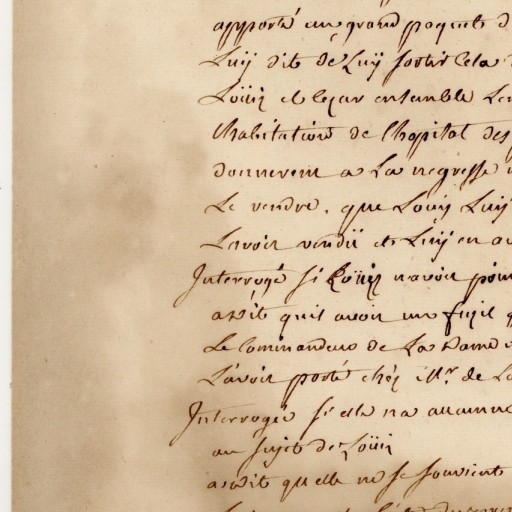 apporté un grand paquet d
Luÿ dit de Luÿ sortir Cela
Loüis et Cezar ensemble
Lhabitation de lhopital des
donnerent a La negresse
Le vendre, que Louis Luÿ
Lavoir vendü et Luÿ en a
Interrogé si Loüis navoit poin
a dit quil avoit un fuzil q
Le Commandeur de La Dame
Lavoir porté chéz Mr. de La
Interrogée si elle na aucunne
au sujet de Loüis
a dit quelle ne se souvient